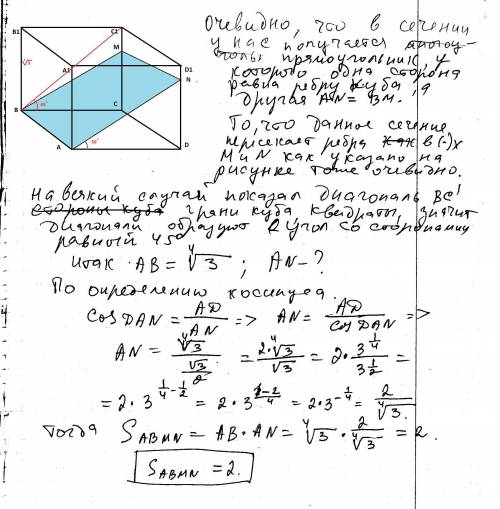 B1
C1
M
∜3
A1
D1
N
B
30°
C
A
30°
D
Очевидно, что в сечении
у нас получается
прямоугольник, у
которого одна сторона
равна ребру куба, а
другая AN = BM.
То, что данное сечение
пересекает ребра в (·)х
M и N как указано на
рисунке тоже очевидно.
На всякий случай показал диагональ BC1
стороны куба грани куба, квадраты, значит
диагонали образуют угол со сторонами
равный 45°
Итак AB = ∜3 ; AN - ?
По определению косинуса
cos DAN = AD/AN => AN = AD/cos DAN =>
AN = ∜3/(√3/2) = 2·∜3/√3 = 2·3^(1/4)/3^(1/2) =
= 2·3^(1/4-1/2) = 2·3^((1-2)/4) = 2·3^(-1/4) = 2/∜3.
Тогда S_ABMN = AB·AN = ∜3 · 2/∜3 = 2.
S_ABMN = 2.